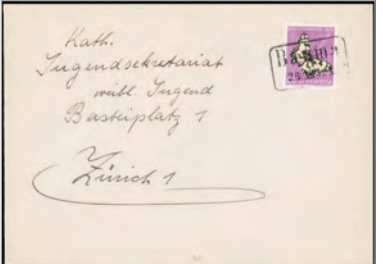 Kath.
Jugendsekretariat
weibl. Jugend
Basteiplatz 1
Zürich 1
Bauma